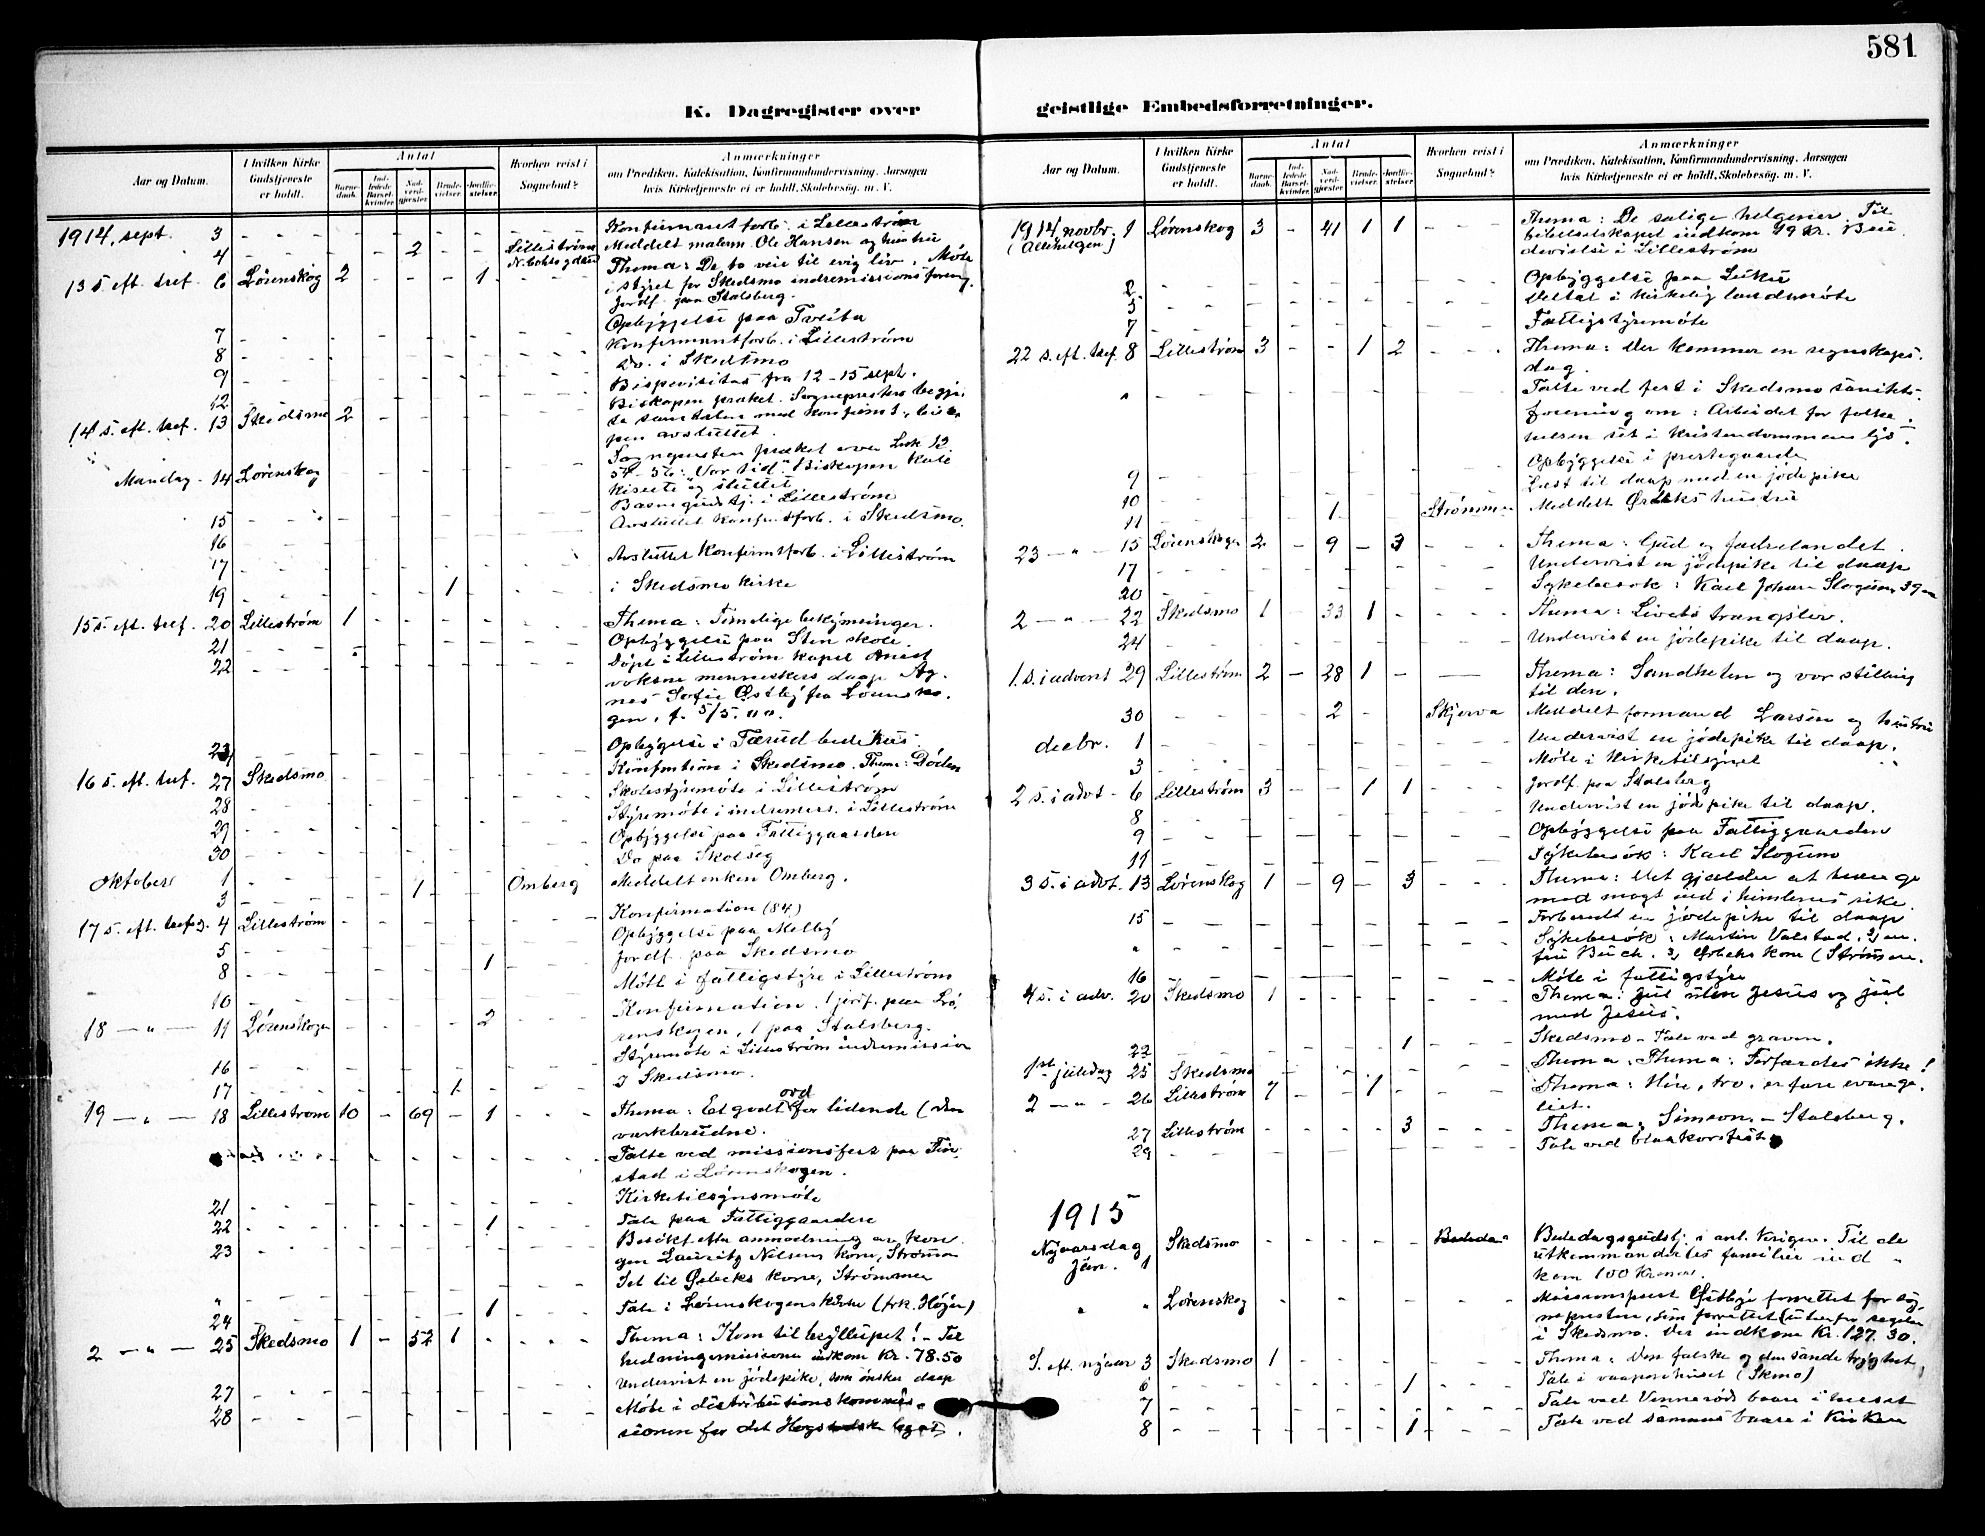 581
K. Dagregister over geistlige Embedsforretninger.
Aar og Datum.
I hvilken Kirke Gudstjeneste er holdt.
Antal
Barnedaab.
Indledede Barselkvinder.
Nadverdgjester
Brudevielser.
Jordfæstelser
Hvorhen reist i Sognebud?
Anmærkninger
om Prædiken, Katekisation, Konfirmandundervisning, Aarsagen
hvis Kirketjeneste ei er holdt, Skolebesøg. m. V.
1914, sept. 3 - - - - - - Konfirmantforb. i Lillestrøm
4 - - - 2 - - Lillestrøm Meddelt malerm. Ole Hansen og hustru
13 s. eft. tref. 6 Lørenskog 2 - - - 1 - Thema: De to veie til evig liv. Møte
i styret for Skedsmo indremissionsforeng.
Jordf. paa Stalsberg.
7 - - Opbyggelse paa Tveita
8 - - Konfirmantforb. i Lillestrøm
9 - - Do. i Skedsmo
12 - - Bispevisitas fra 12-15 sept.
14 s. eft. tref. 13 Skedsmo 2 - Biskopen præket. Sognepresten begyn-
te samtalen med konfirm
pen avsluttet.
Mandag - 14 Lørenskog - Sognepresten præket over Luk 12
54-56: "Vor tid". Biskopen kate
kiserte og sluttet
15 - - Barnegudstj. i Lillestrøm
16 - - Avsluttet konf forb. i Skedsmo.
17 - - Avsluttet Konfirmtforb. i Lillestrøm
19 - - 1 - i Skedsmo kirke
15 s. eft. tref. 20 Lillestrøm 1 - Thema: Timelige bekymringer.
21 - - Opbyggelse paa Sten skole
22 - - Døpt i Lillestrøm kapel
voksne menneskers daap Ag-
nes Sofie Østby fra Lørensko-
gen, f. 5/5.
23 - - Opbyggelse i Færud bedehus
16 s. eft. tref. 27 Skedsmo - Konfmtion i Skedsmo. Thema: Døden
28 - - Skolestyremøte i Lillestrøm
- - Styremøte i indremiss. i Lillestrøm
29 - - Opbyggelse paa Fattiggaarden
30 - - Do paa Skolseg
Oktober 1 - - 1 - Omberg Meddelt enken Omberg.
3 - -
17 s. eft. tref. 4 Lillestrøm - Konfirmation (84)
Opbyggelse paa Melby
5 - - 1 - Jordf. paa Skedsmo
8 - - Møte i fattigstyre i Lillestrøm
10 - -
18 — „ — 11 Lørenskogen - - 2 - Konfirmation. 1 jorf. paa Lø-
renskogen, 1 paa Stalsberg.
16 - - Styremøte i Lillestrøm indremission
17 - - 1 - I Skedsmo.
19 — „ — 18 Lillestrøm 10 - 69 - 1 - Thema: Et godt ord for lidende (den
verkbrudne.
- - Talte ved missionsfest paa Fin-
stad i Lørenskogen.
21 - - Kirketilsynsmøte
22 - - 1 - Tale paa Fattiggaarden
23 - - Besøkt efter anmodning av kon-
gen Lauritz Nilsens kone, Strømmen
Set til Ørbecks kone, Strømmen
24 - - 1 - Tale i Lørenskogens kirke (frk. Høyer)
2 — „ — 25 Skedsmo 1 - 52 1 - Thema: Kom til bryllupet! - Til
hedningemissionen indkom kr. 78.50
Undervist en jødepike, som ønsker daap
27 - - Møte i distributionskommis-
28 - - sionen for det legat.
1914 novbr. 1 Lørenskog 3 - 41 1 1 - Thema: De salige helgener. Til
(Allehelgen) bibelselskapet indkom 19 kr.
i Lillestrøm
2 - - Opbyggelse paa
5 - - Deltat i kirkelig landsmøte
7 - - Fattigstyremøte
22 s. eft. tref. 8 Lillestrøm 3 - - 1 2 - Thema: Der kommer en regnskaps-
dag.
Talte ved fest i Skedsmo sanitets-
forening om: Arbeidet for folke-
helsen set i kristendommens lys.
9 - - Opbyggelse i prestegaarden
10 - - Læst til daap med en jødepike
11 - - 1 - Strømmen Meddelt Ørbeks hustru
23 — „ — 15 Lørenskogen 2 - 9 - 3 - Thema: Gud og fædrelandet.
17 - - Undervist en jødepike til daap
20 - - Sykebesøk: Karl Johan Slogum
2 — „ — 22 Skedsmo 1 - 33 1 - Thema: Livets trængsler.
24 - - Undervist en jødepike til daap.
1. s. i advent 29 Lillestrøm 2 - 28 1 - Thema: Sandheten og vor stilling
til den.
30 - - 2 - Skjerva Meddelt formand Larsen og hustru
decbr. 1 - - Undervist en jødepike til daap.
3 - - Møte i kirketilsynet
2 s. i advt - 6 Lillestrøm 3 - - 1 1 - Jordf. paa Stalsberg
8 - - Undervist en jødepike til daap.
9 - - Opbyggelse paa Fattiggaarden
11 - - Sykebesøk: Karl Slogum
3 s. i advt. 13 Lørenskog 1 - 9 - 3 - Thema: Det gjælder at trænge
med magt ind i himlenes rike.
15 - - Forberedt en jødepike til daap
Sykebesøk: Martin Valstad,
fru Buch. Ørbeks kone (Strømen.
16 - - Møte i fattigstyre
4 s. i adv. 20 Skedsmo 1 - Thema: Jul uten Jesus og jul
med Jesus.
22 - - 1 - Skedsmo - Tale ved graven.
1st juledag 25 Skedsmo Thema. Thema: Forfærdes ikke!
2 — „ — 26 Lillestrøm 7 - - 1 - Thema: Høre, tro, erfare evange-
liet.
27 Lillestrøm - 3 - Thema: Simeon. - Stalsberg.
29 - - Tale ved blaakorsfest
1915
Nyaarsdag Skedsmo - Bededagsgudst. i anl. krigen. Til de
Jan. utkommandertes familier ind-
kom 100 Kroner.
„ „ Lørenskog - Missionsprest Østbye forrettet for sog-
nepresten, som forrettet
i Skedsmo. Der indkom Kr. 127.30.
S. eft. nyaar 3 Skedsmo 1 - Thema: Den falske og den sande tryghet.
6 - - 1 - Tale i vaapenhuset (Skmo)
7 - - Tale ved Vennerøds baare i huset
8 - - 1 - Tale ved samme baare i kirken